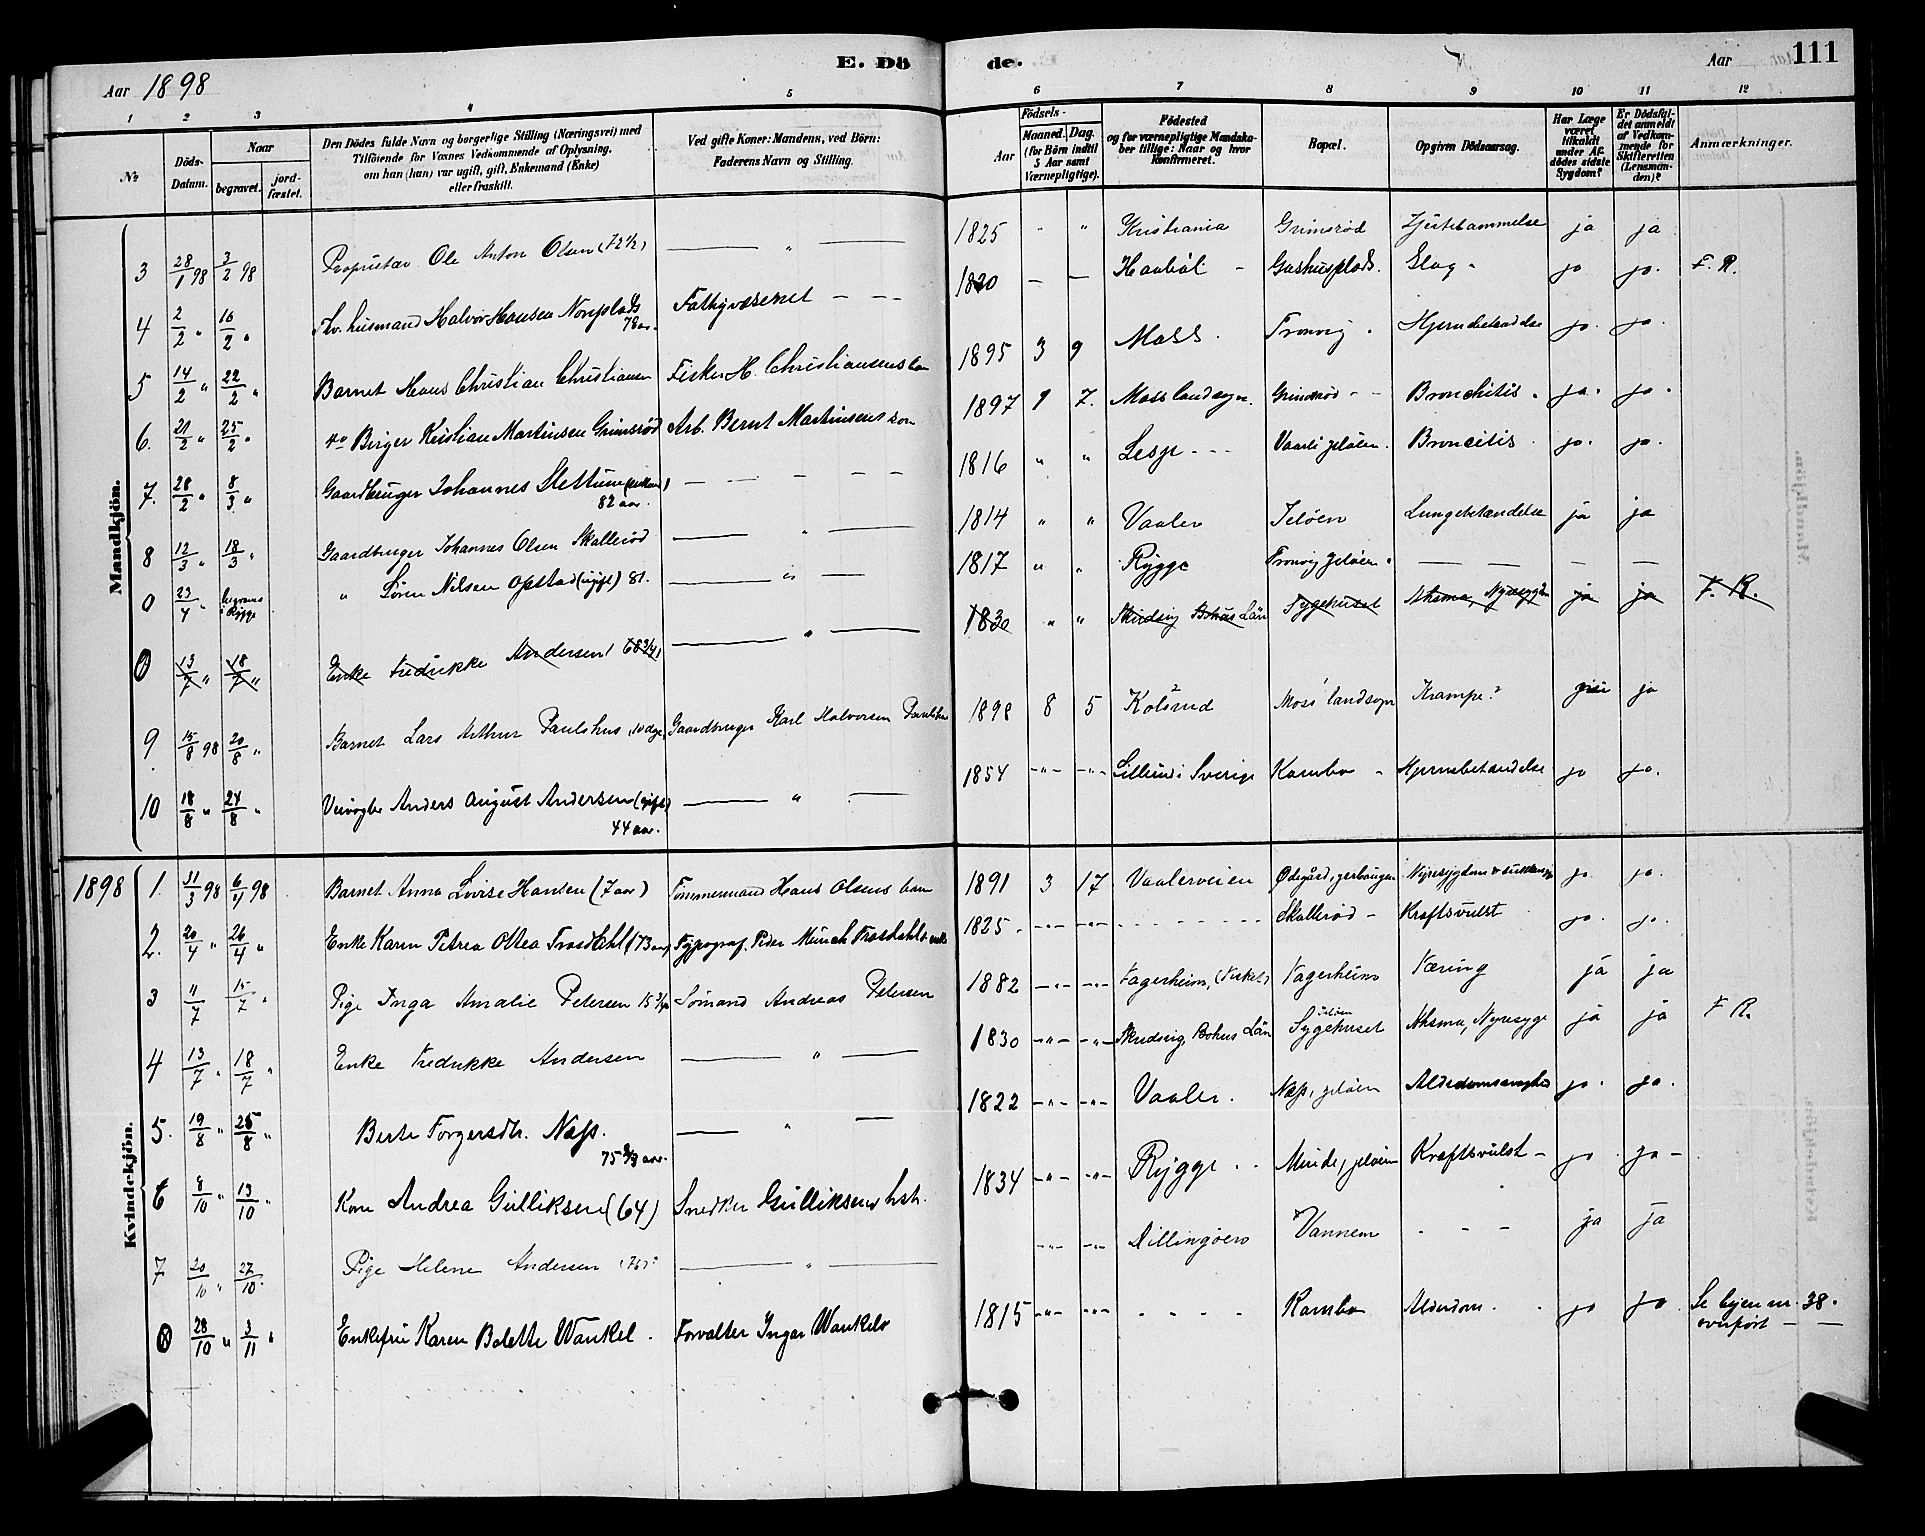 E. Dö de. 111
Aar 1898 Aar
1 2 3 4 5 6 7 8 9 10 11 12
No Döds-Datum. Naar begravet. jord-fæstet. Den Dödes fulde Navn og borgerlige Stilling (Næringsvei) med Tilföiende for Voxnes Vedkommende af Oplysning, om han (hun) var ugift, gift, Enkemand (Enke) eller fraskilt. Ved gifte Koner: Mandens, ved Börn: Faderens Navn og Stilling. Födsels- Aar Maaned. Dag. (for Börn indtil 5 Aar samt Værnepligtige). Födested og for værnepligtige Mandskaber tillige: Naar og hvor Konfirmeret. Bopæl. Opgiven Dödsaarsag. Har Læge været tilkaldt under Afdödes sidste Sygdom? Er Dödsfaldet anmeldt af Vedkommende for Skifteretten (Lensmanden)? Anmærkninger.
Mandkjön.
3 28/1 98 3/2 98 Proprietær Ole Anton Olsen (72 1/2) — " — 1825 " " Kristiania Grimsrød Hjertelammelse ja ja
4 2/2 " 10/2 " Fhv. husmand Halvor Hansen Norsplads 78 aar. Fattigvæsenet - - - 1820 — — Haabøl - Gashusplads. Slag - ja ja. F. R.
5 14/2 " 22/2 " Barnet Hans Christian Christiansen Fisker H. Christiansens barn 1895 3 9 Moss. Tronvig. Hjernebetændelse ja. ja.
6. 21/2 " 25/2 " do Birger Kristian Martinsen Grimsrød Arb. Bernt Martinsens søn 1897 1 7. Moss landsogn. Grimsrød - - Bronchitis. ja. ja.
7. 28/2 " 8/3 " Gaardbruger Johannes Slettum 82 aar. — — - — — 1816 " " Lesje - - - Vaarli jeløen. Broncitis. ja. ja.
8 12/3 " 18/3 " Gaardbruger Johannes Olsen Skallerød — " — 1814 " " Vaaler Jeløen Lungebetændelse ja ja
0 23/4 " begraves i Rygge " Søren Nilsen Opstad (ugift) 81. — " — 1817 " " Rygge Tronvig Jeløen. — — — —
0 13/7 " 18/7 " Enke Fredrikke Andersen (68 3/4) — " — 1830 " " Bohus Län Sygehuset Athsma, Nyresyge ja ja F. R.
9. 15/8 98 20/8 " Barnet Lars Arthur Paulshus (10 dage) Gaardbruger Karl Halvorsen Paulshus 1898 8 5 Kolsrud Moss landsogn Krampe? ja
10 18/8 " 24/8 " Veivogter Anders August Andersen (gift) 44 aar. — " — 1854 -"- -"- Sverige Kambo - Hjernebetændelse ja ja.
Kvindekjön.
1898 1. 31/3 98 6/4 98 Barnet Anna Lovise Hansen (7 aar) Tømmermand Hans Olsens barn 1891 3 17 Vaalerveien Ødegård, Nyresygdom ja. ja.
2. 20/4 " 26/4 " Enke Karen Petrea Ottea Trosdahl (73 aar) Typograf. Peder Münch Trosdahls enke 1825. -"- -"- - - - - - - Skallerød - Kraftsvulst ja. ja.
3 11/7 15/7 " Pige Inga Amalie Petersen 15 Sømand Andreas Petersen 1882 -"- -"- Fagerheim, Fagerheim Tæring ja ja
4 13/7 " 18/7 " Enke Fredrikke Andersen — " — 1830 -"- -"- Bohus Län Jeløen Sygehuset Athsma, Nyresyge ja ja F R.
5. 19/8 " 25/8 " Berte Torgersdtr. Næs. 75 2/3 aar. — " — 1822 -"- -"- Vaaler. Næs, jeløen Alderdomssvaghed ja. ja.
6 8/10 " 13/10 " Kone Andrea Gulliksen (64) Snedker Gulliksens hstr. 1834 -"- -"- Rygge - - Minde, jeløen Kraftsvulst - ja. ja -
7 20/10 " 27/10 " Pige Helene Andersen — " — -"- -"- Dillingøen Vannem - - - ja ja
8 28/10 " 3/11 " Enkefru Karen Bolette Wankel. Forvalter Ingar Wankels 1815 -"- -"- - - - - Kambo Alderdom. - ja ja Se byen nr. 38. overført — —